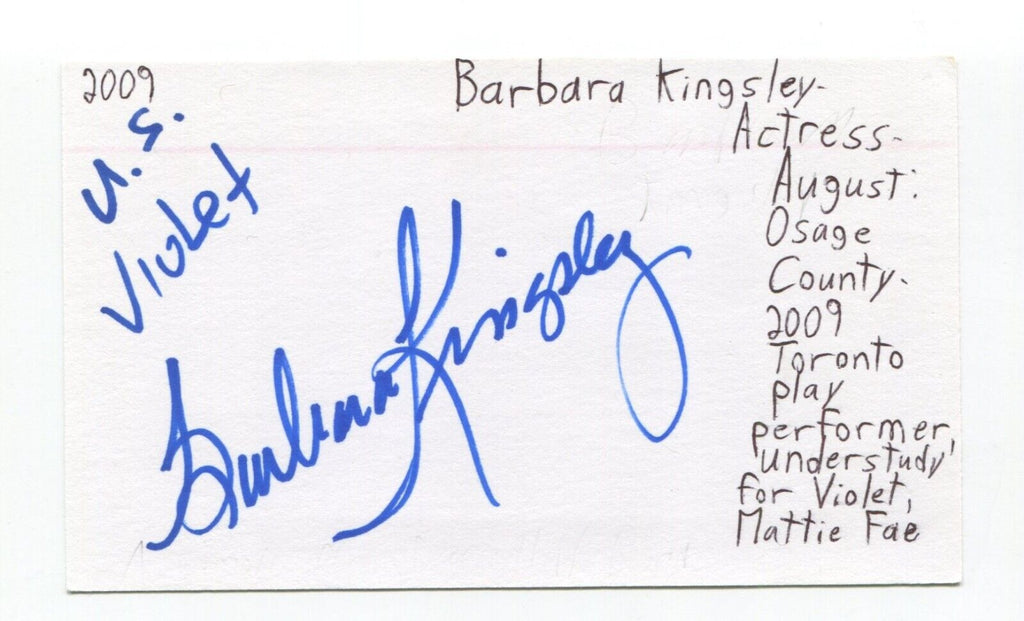 2009
Barbara Kingsley-
Actress-
August:
Osage
County-
2009
Toronto
play
performer,
'understudy'
for Violet,
Mattie Fae
U.S.
Violet
Barbara Kingsley